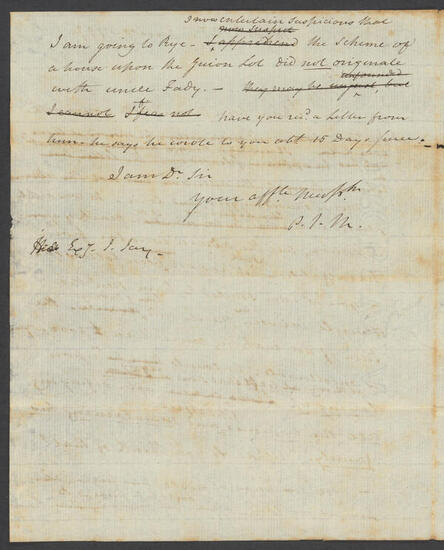 I now entertain suspicions that
now suspect
I am going to Rye - I apprehend the Scheme of
a house upon the Guion Lot did not originate
unfounded
with uncle Fady. - they may be unjust, but
I cannot I fear not have you recd. a Letter from
him - he says he wrote to you abt 15 Days since.
I am Dr. Sir
Your affte. Nephw.
P. J. M.
Esqr. J. Jay -